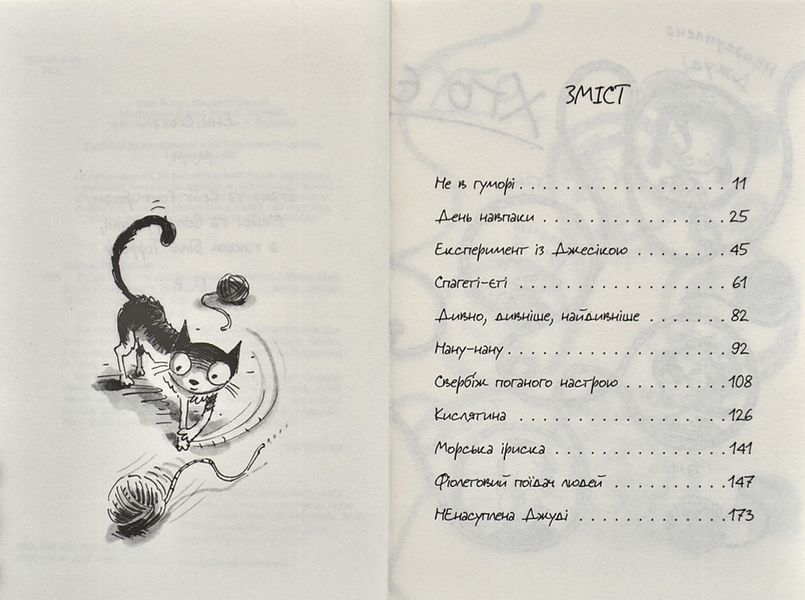 ЗМІСТ
Не в гуморі . . . . . . . . . . . . . . . . . . 11
День навпаки . . . . . . . . . . . . . . . . 25
Експеримент із Джесікою . . . . . . . . 45
Спагеті-єті . . . . . . . . . . . . . . . . . . . 61
Дивно, дивніше, найдивніше . . . . . . . 82
Ману-нану . . . . . . . . . . . . . . . . . . . 92
Свербіж поганого настрою . . . . . . . . 108
Кислятина . . . . . . . . . . . . . . . . . . 126
Морська іриска . . . . . . . . . . . . . . . 141
Фіолетовий поїдач людей . . . . . . . . . 147
НЕнасуплена Джуді . . . . . . . . . . . . . 173